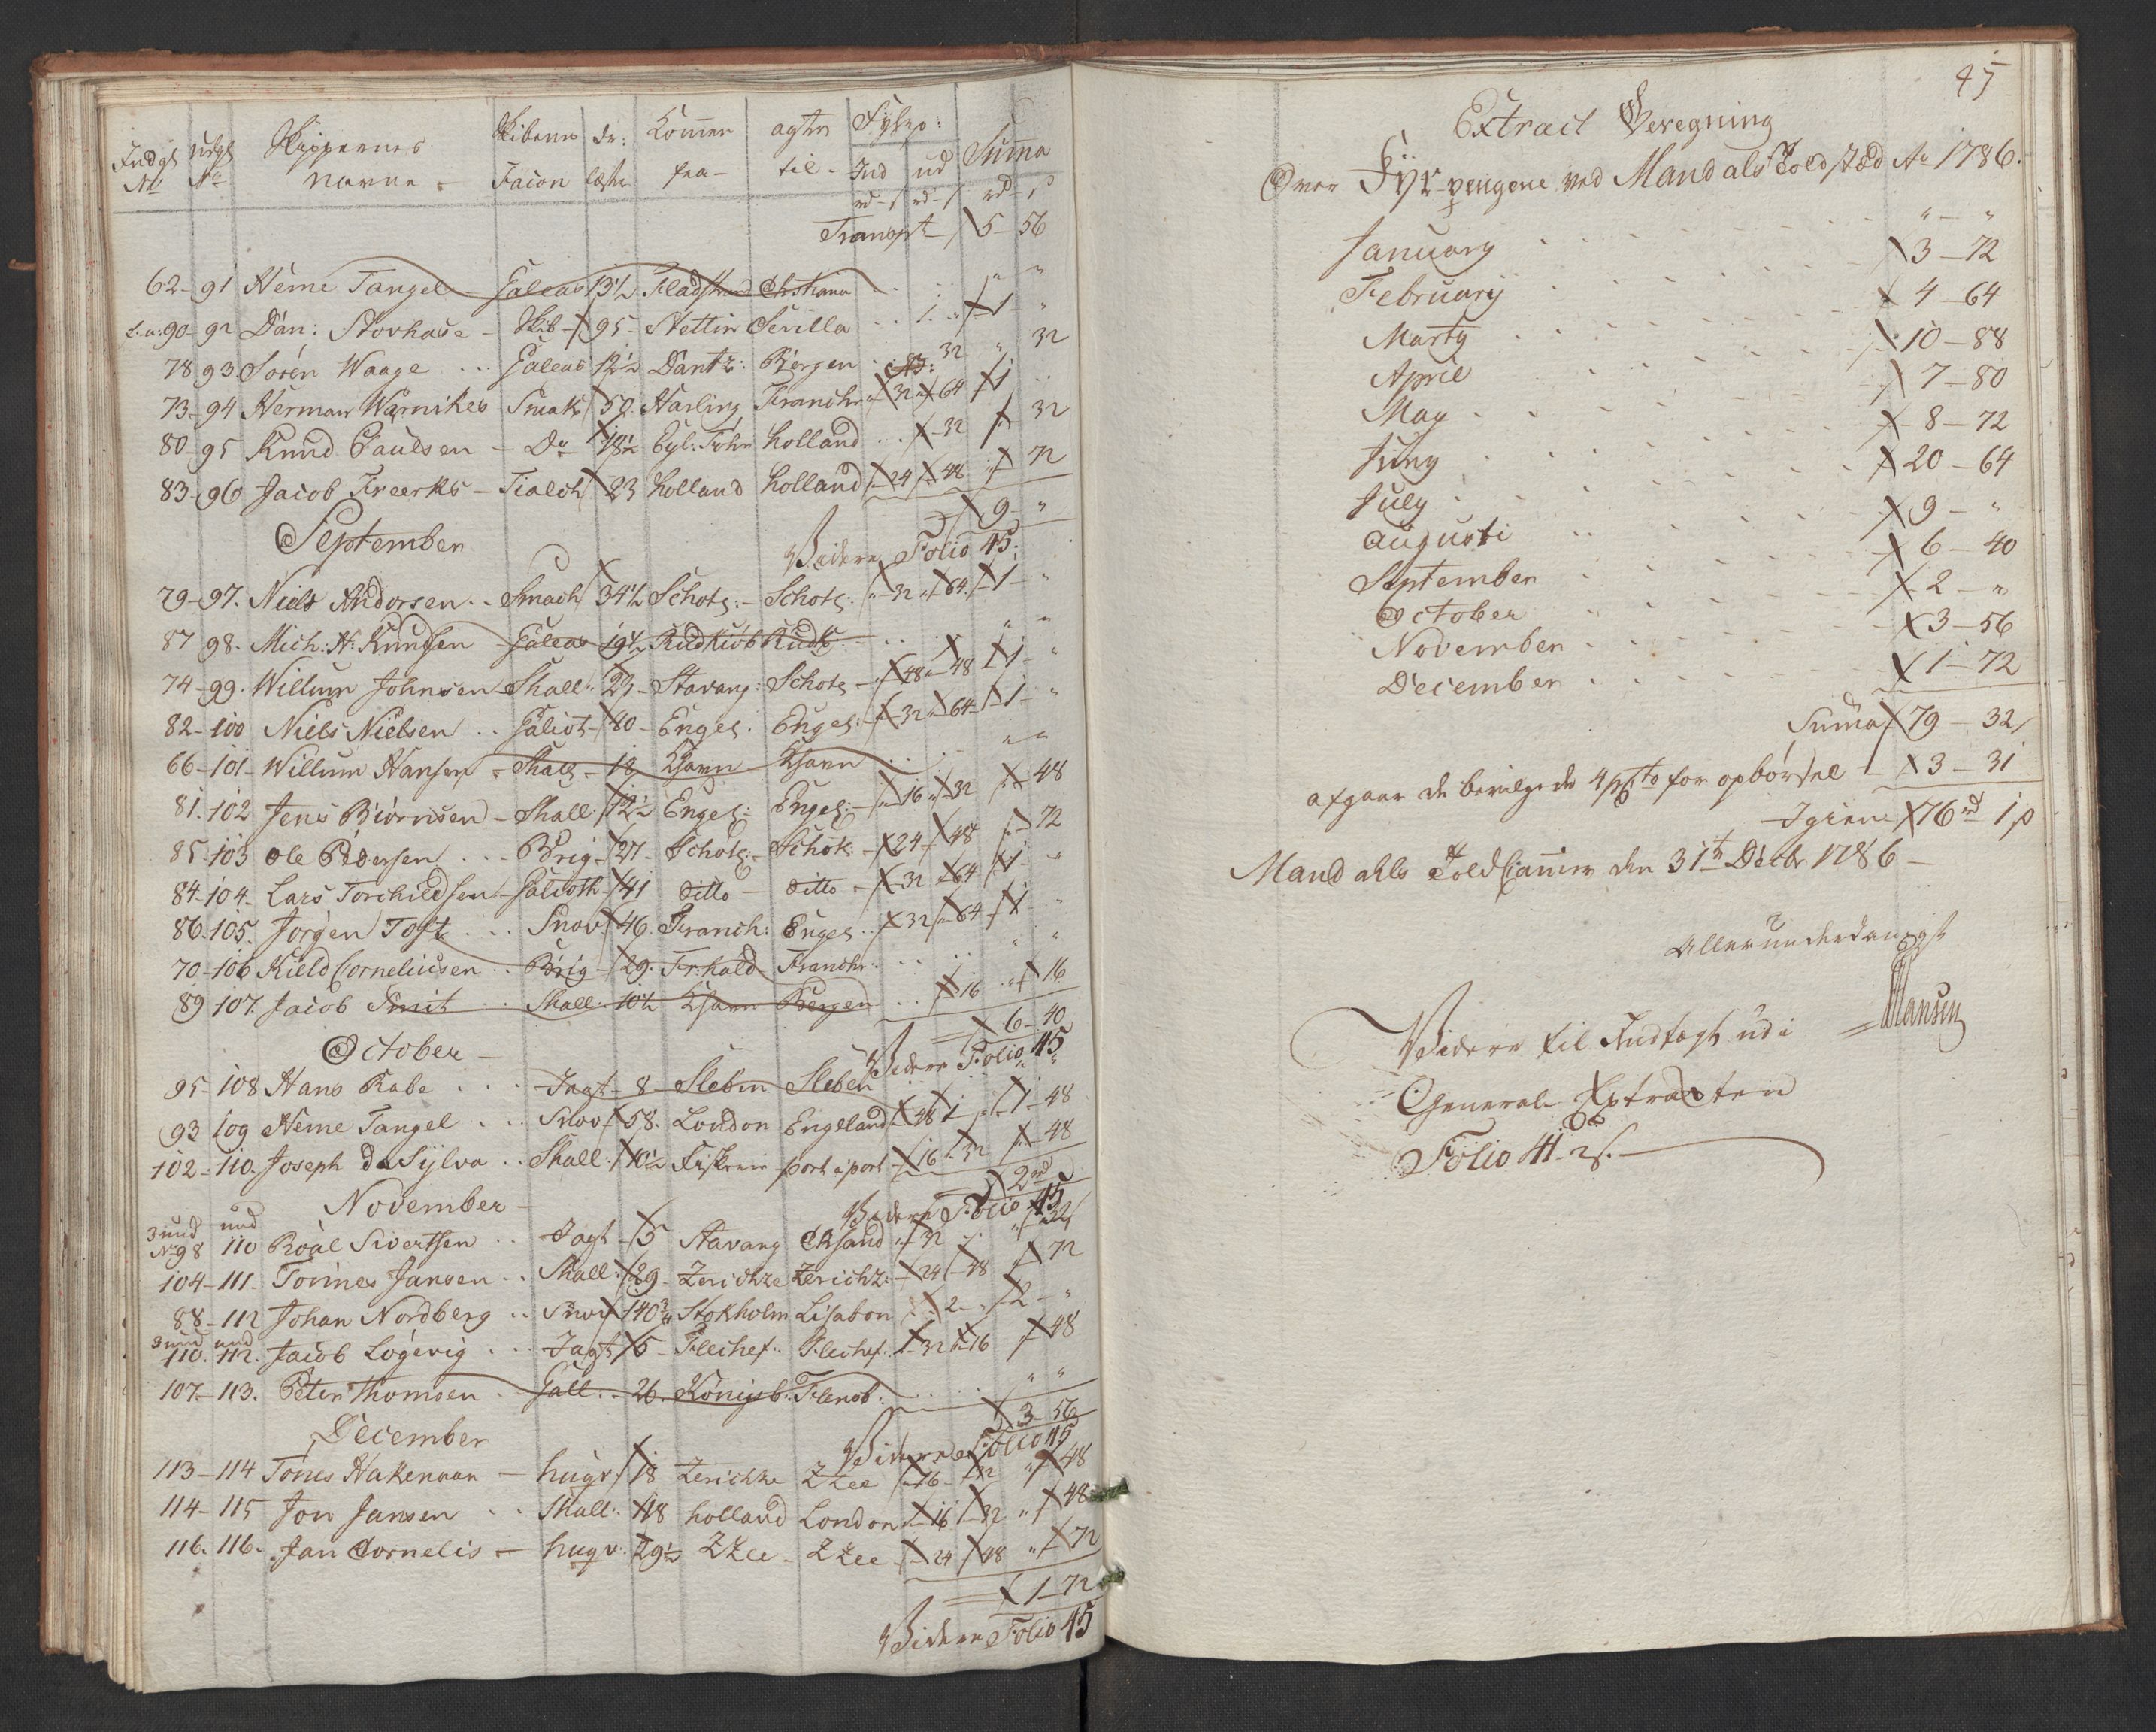 Indg: Udg: Skippernes Skibenes dr: Kommer agter Fyhrp: Suma
No No Navne Facon læster fra til Ind ud
rd s rd s rd s
Transpt 5 56
62 - 91 Heme Tangel - Galeas 13½ Fladstrand Chstiania " "
L: a: 90 - 92 Dan: Stovhase - Skib - 95 - Stettin Sevilla 1 " 1 "
78 93 Sören Waage Galeas 12½ Dantz: Bergen 32 " 32
73 - 94 Herman Warnikes Smak 50 Harling Franchr 32 64 1
80 - 95 Knud Paulsen - Do 18½ Eyl: Föhr Holland 32 32
83 - 96 Jacob Freerks - Tialch 23 Holland Holland 24 48 72
9 - "
September Videre Folio 45
79 - 97. Niels Andorsen Smach 34½ Schotl: - Schotl: 32 64 1 "
87 98. Mich: H: Knudsen Galeas 19½ Rudkiöb Rudk: " "
74 - 99. Willum Johnsen - Skall: 23 - Stavang: Schotl 48 48 1 "
82 - 100 Niels Nielsen Galiot - 40 - Engel. Engel: 32 64 1 "
66 - 101 - Willum Hansen - Skall - 18 Khavn Khavn " "
81. 102 Jens Biörnsen - Skall: 12½ Engel: Engel: 16 32 48
85 - 103 Ole Pedersen Brig - 27 - Schotl: - Schotl: 24 48 72
84 - 104 - Lars Torchildsen - Galioth - 41 ditto - ditto - 32 64 1 "
86. 105. Jörgen Toft Snov 46. Franch: Engel 32 64 1 "
70 - 106 Kield Cornelisen Brig - 29. Fr:hald Franchr: " "
89 107. Jacob Smit Skall: 10½ Khavn Bergen 16 16
6 - 40
October - Videre Folio 45
95 - 108 Hans Rabe Jagt - 8 - Sleben Sleben " "
93 109 Heme Tangel Snov 58. London Engelland 48 1 1 - 48
102 - 110. Joseph da Sylva Skall: 10½ Fiskerie port a port 16 32 48
2rd
November - Videre Folio 45
3 und und
No 98 110 Roal Sivertsen Jagt 5 Stavang Chsand 32 32
104 - 111 - Tönnes Jansen Skall: 29 - Zerichze Zerichz: 24 48 72
88 - 112 Johan Nordberg Snov 140¾ Stokholm Lisabon 2 - " 2 - "
3 und und
110. 112. Jacob Lögevig Jagt 5 - Flechef: Flechef. 32 16 48
107 - 113. Peter Thomsen Gall: - 26. Königsb: Flensb: " "
3 - 56
December Videre Folio 45
113 - 114 Tönes Hakeman - Hugv 18 Zerichze ZZee 16 32 " 48
114 - 115 Jon Jansen Skall: 18 Holland London 16 32 " 48
116. 116. Jan Cornelis - Hugv: 29½ ZZee - ZZee - 24 48 " 72
1 - 72
Videre Folio 45
45
Extract Beregning
Over Fyr-pengene ved Mandals Toldsted Ao 1786.
January " - "
February 3 - 72
Marty 4 - 64
April 10 - 88
May 7 - 80
Juny 8 - 72
July 20 - 64
Augusti 9 - "
September 6 - 40
October 2 - "
November 3 - 56
December 1 - 72
Suma 79 - 32
afgaar de bevilgede 4 pCto for opbörsel - 3 - 31
Igien 76rd 1 s
Mandahls Told Camer den 31te Decbr 1786 -
Allerunderdanigst
Hansen
Videre til Indtægt udi
General Extracten
Folio 41 -